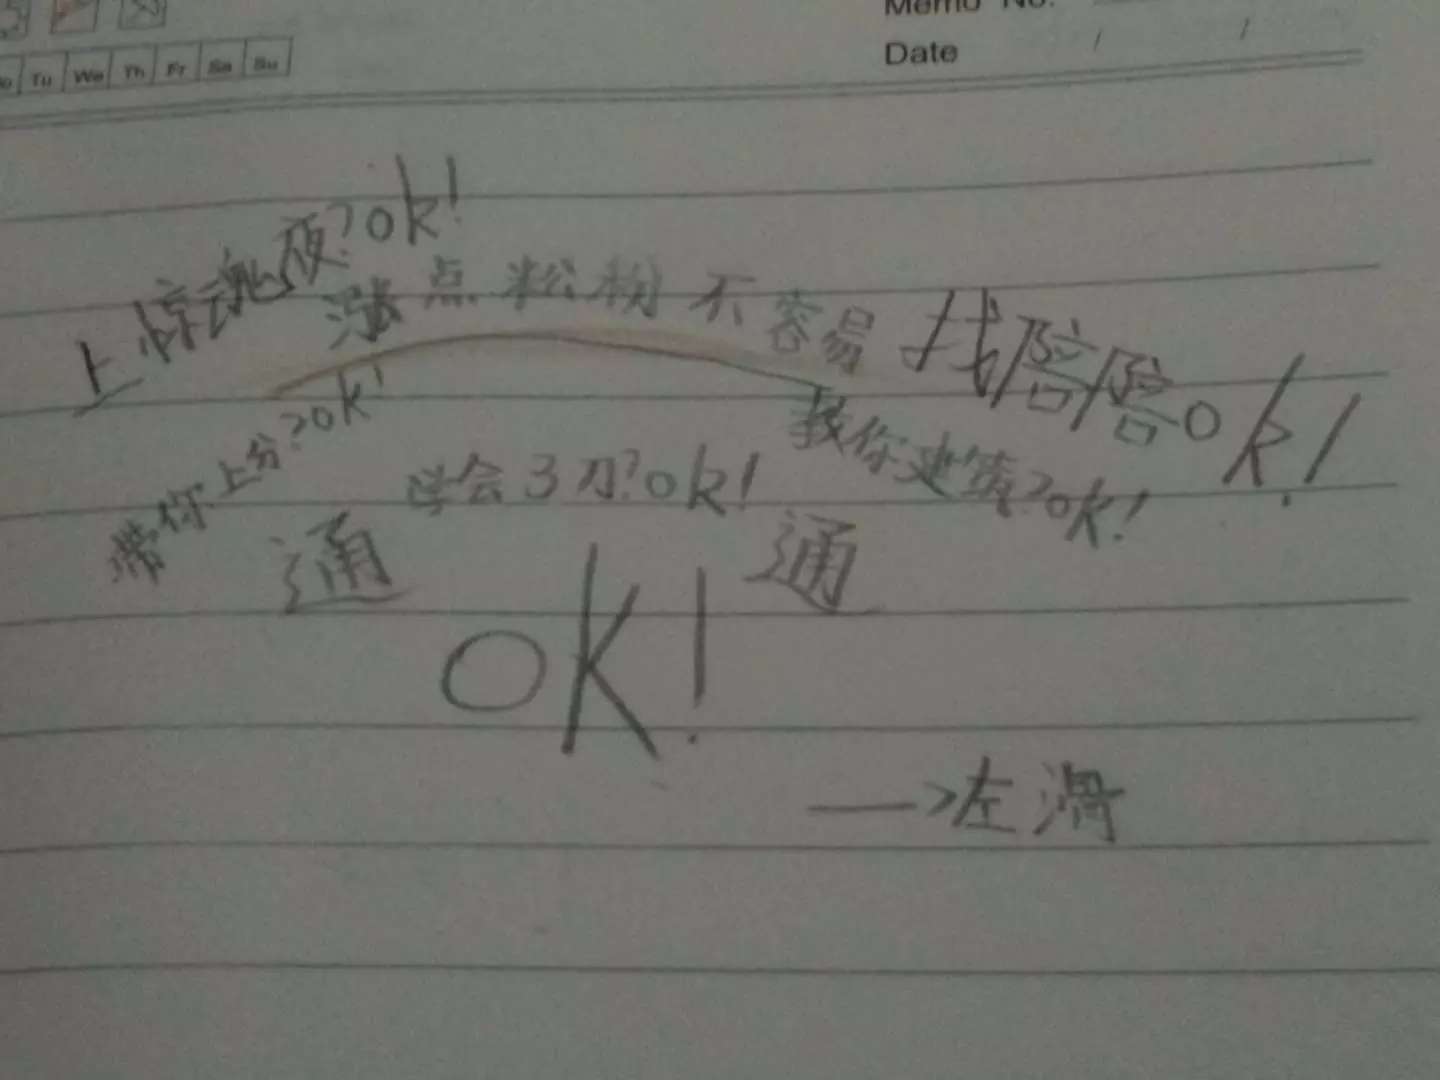 Memo No.
Date / /
Tu We Th Fr Sa Su
上惊魂夜?ok!
涨点粉粉不容易
找陪陪ok!
带你上分?ok!
学会3刀?ok!
教你建筑?ok!
通通
OK!
→左滑